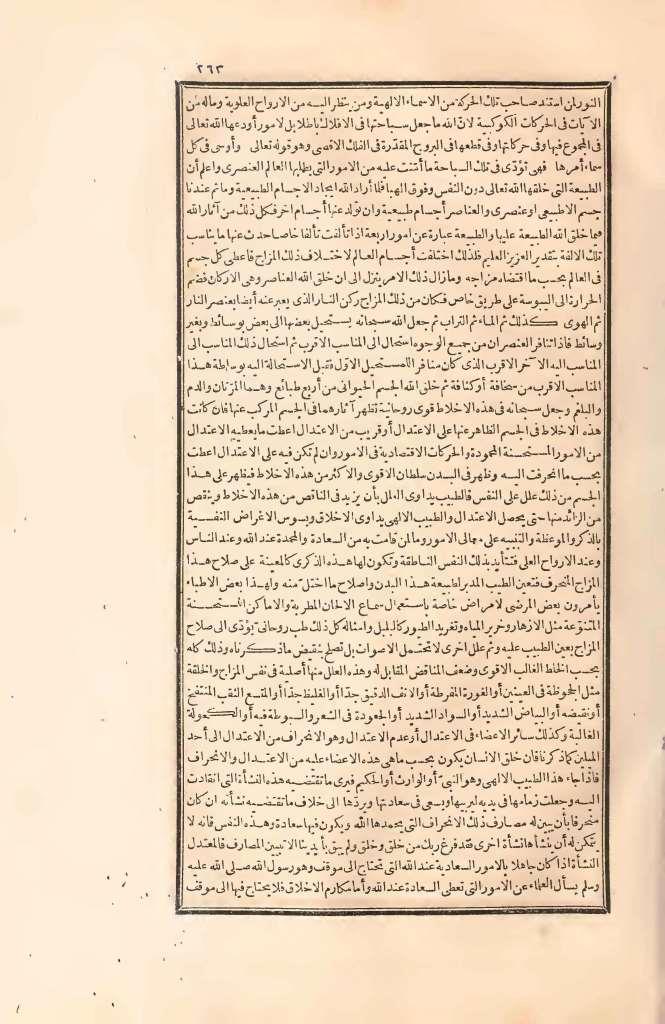 ٢٦٣
النوران استند صاحب تلك الحركة من الاسماء الالهية ومن ينظر اليه من الارواح العلوية وماله من
الآيات في الحركات الكوكبية لان الله ما جعل سباحتها في الافلاك باطلا بل لامور أودعها الله تعالى
في المجموع فيها وفي حركاتها وفي قطعها في البروج المقدّرة في الفلك الاقصى وهو قوله تعالى وأوحى في كل
سماء أمرها فهي تؤدّى في تلك السباحة ما أمّنت عليه من الامور التي يطلبها العالم العنصرى واعلم أن
الطبيعة التي خلقها الله تعالى دون النفس وفوق الهبا فلما أراد الله ايجاد الاجسام الطبيعية وما ثم عندنا
جسم الا طبيعي أو عنصرى والعناصر أجسام طبيعية وان تولد عنها أجسام اخر فكل ذلك من آثار الله
فما خلق الله الطبيعة عليها والطبيعة عبارة عن امور اربعة اذا تألفت تألفا خاصا حدث عنها ما يناسب
تلك الالفة بتقدير العزيز العليم فلذلك اختلفت أجسام العالم لاختلاف ذلك المزاج فاعطى كل جسم
في العالم بحسب ما اقتضاه مزاجه وما زال ذلك الامر ينزل الى ان خلق الله العناصر وهي الاركان فضم
الحرارة الى اليبوسة على طريق خاص فكان من ذلك المزاج ركن النار الذى يعبر عنه أيضا بعنصر النار
ثم الهوى كذلك ثم الماء ثم التراب ثم جعل الله سبحانه يستحيل بعضها الى بعض بوسائط وبغير
وسائط فاذا تنافر العنصران من جميع الوجوه استحال الى المناسب الاقرب ثم استحال ذلك المناسب الى
المناسب اليه الآخر الاقرب الذى كان منافرا للمستحيل الاوّل فقبل الاستحالة اليه بوساطة هذا
المناسب الاقرب من سخافة أو كثافة ثم خلق الله الجسم الحيوانى من أربع طبائع وهما المرّتان والدم
والبلغم وجعل سبحانه في هذه الاخلاط قوى روحانية تظهر آثارهما في الجسم المركب عنها فان كانت
هذه الاخلاط في الجسم الظاهر عنها على الاعتدال أو قريب من الاعتدال اعطت ما يعطيه الاعتدال
من الامور المستحسنة المحمودة والحركات الاقتصادية في الامور وان لم تكن فيه على الاعتدال اعطت
بحسب ما انحرفت اليه وظهر في البدن سلطان الاقوى والاكثر من هذه الاخلاط فيظهر على هذا
الجسم من ذلك علل على النفس فالطبيب يداوى العلل بأن يزيد في الناقص من هذه الاخلاط وينقص
من الزائد منها حتى يحصل الاعتدال والطبيب الالهى يداوى الاخلاق ويسوس الاغراض النفسية
بالذكر والموعظة والتنبيه على معالى الامور وما لمن قامت به من السعادة والمحمدة عند الله وعند الناس
وعند الارواح العلى فتتأيد بذلك النفس الناطقة وتكون لها هذه الذكرى كالمعينة على صلاح هذا
المزاج المنحرف فتعين الطبيب المدبر لطبيعة هذا البدن واصلاح ما اختل منه ولهذا بعض الاطباء
يأمرون بعض المرضى لامراض خاصة باستعمال سماع الالحان المطربة والاماكن المستحسنة
المتنوّعة مثل الازهار وخرير المياه وتغريد الطيور كالبلبل وامثاله كل ذلك طب روحانى يؤدّى الى صلاح
المزاج يعين الطبيب عليه وثم علل اخرى لا تحتمل الاصوات بل تصلح بنقيض ما ذكرناه وذلك كله
بحسب الخلط الغالب الاقوى وضعف المناقض المقابل له وهذه العلل منها أصلية في نفس المزاج والخلقة
مثل الجحوظة في العينين أو الغورة المفرطة أو الانف الدقيق جدّا أو الغليظ جدّا أو المتسع الثقب المنتفخ
أو نقيضه أو البياض الشديد أو السواد الشديد أو الجعودة في الشعر والسبوطة فيه أو الكعولة
الغالبة وكذلك سائر الاعضاء في الاعتدال أو عدم الاعتدال وهو الانحراف من الاعتدال الى أحد
الميلين كما ذكرنا فان خلق الانسان يكون بحسب ما هى هذه الاعضاء عليه من الاعتدال والانحراف
فاذا جاء هذا الطبيب الالهى وهو النبىّ أو الوارث أو الحكيم فيرى ما تقتضيه هذه النشأة التي انقادت
اليه وجعلت زمامها في يديه ليربيها ويسعى في سعادتها ويردّها الى خلاف ما تقتضيه نشأته ان كان
منحرفا بأن يبين له مصارف ذلك الانحراف التي يحمدها الله ويكون فيها سعادة وهذه النفس فانه لا
يتمكن له أن ينشأها نشأة اخرى فقد فرغ ربك من خلق وخلق ولم يبق بأيدينا الا تبيين المصارف فالمعتدل
النشأة اذا كان جاهلا بالامور السعادية عند الله التي تحتاج الى موقف وهو رسول الله صلى الله عليه
وسلم يسأل العلماء عن الامور التي تعطى السعادة عند الله وأما مكارم الاخلاق فلا يحتاج فيها الى موقف